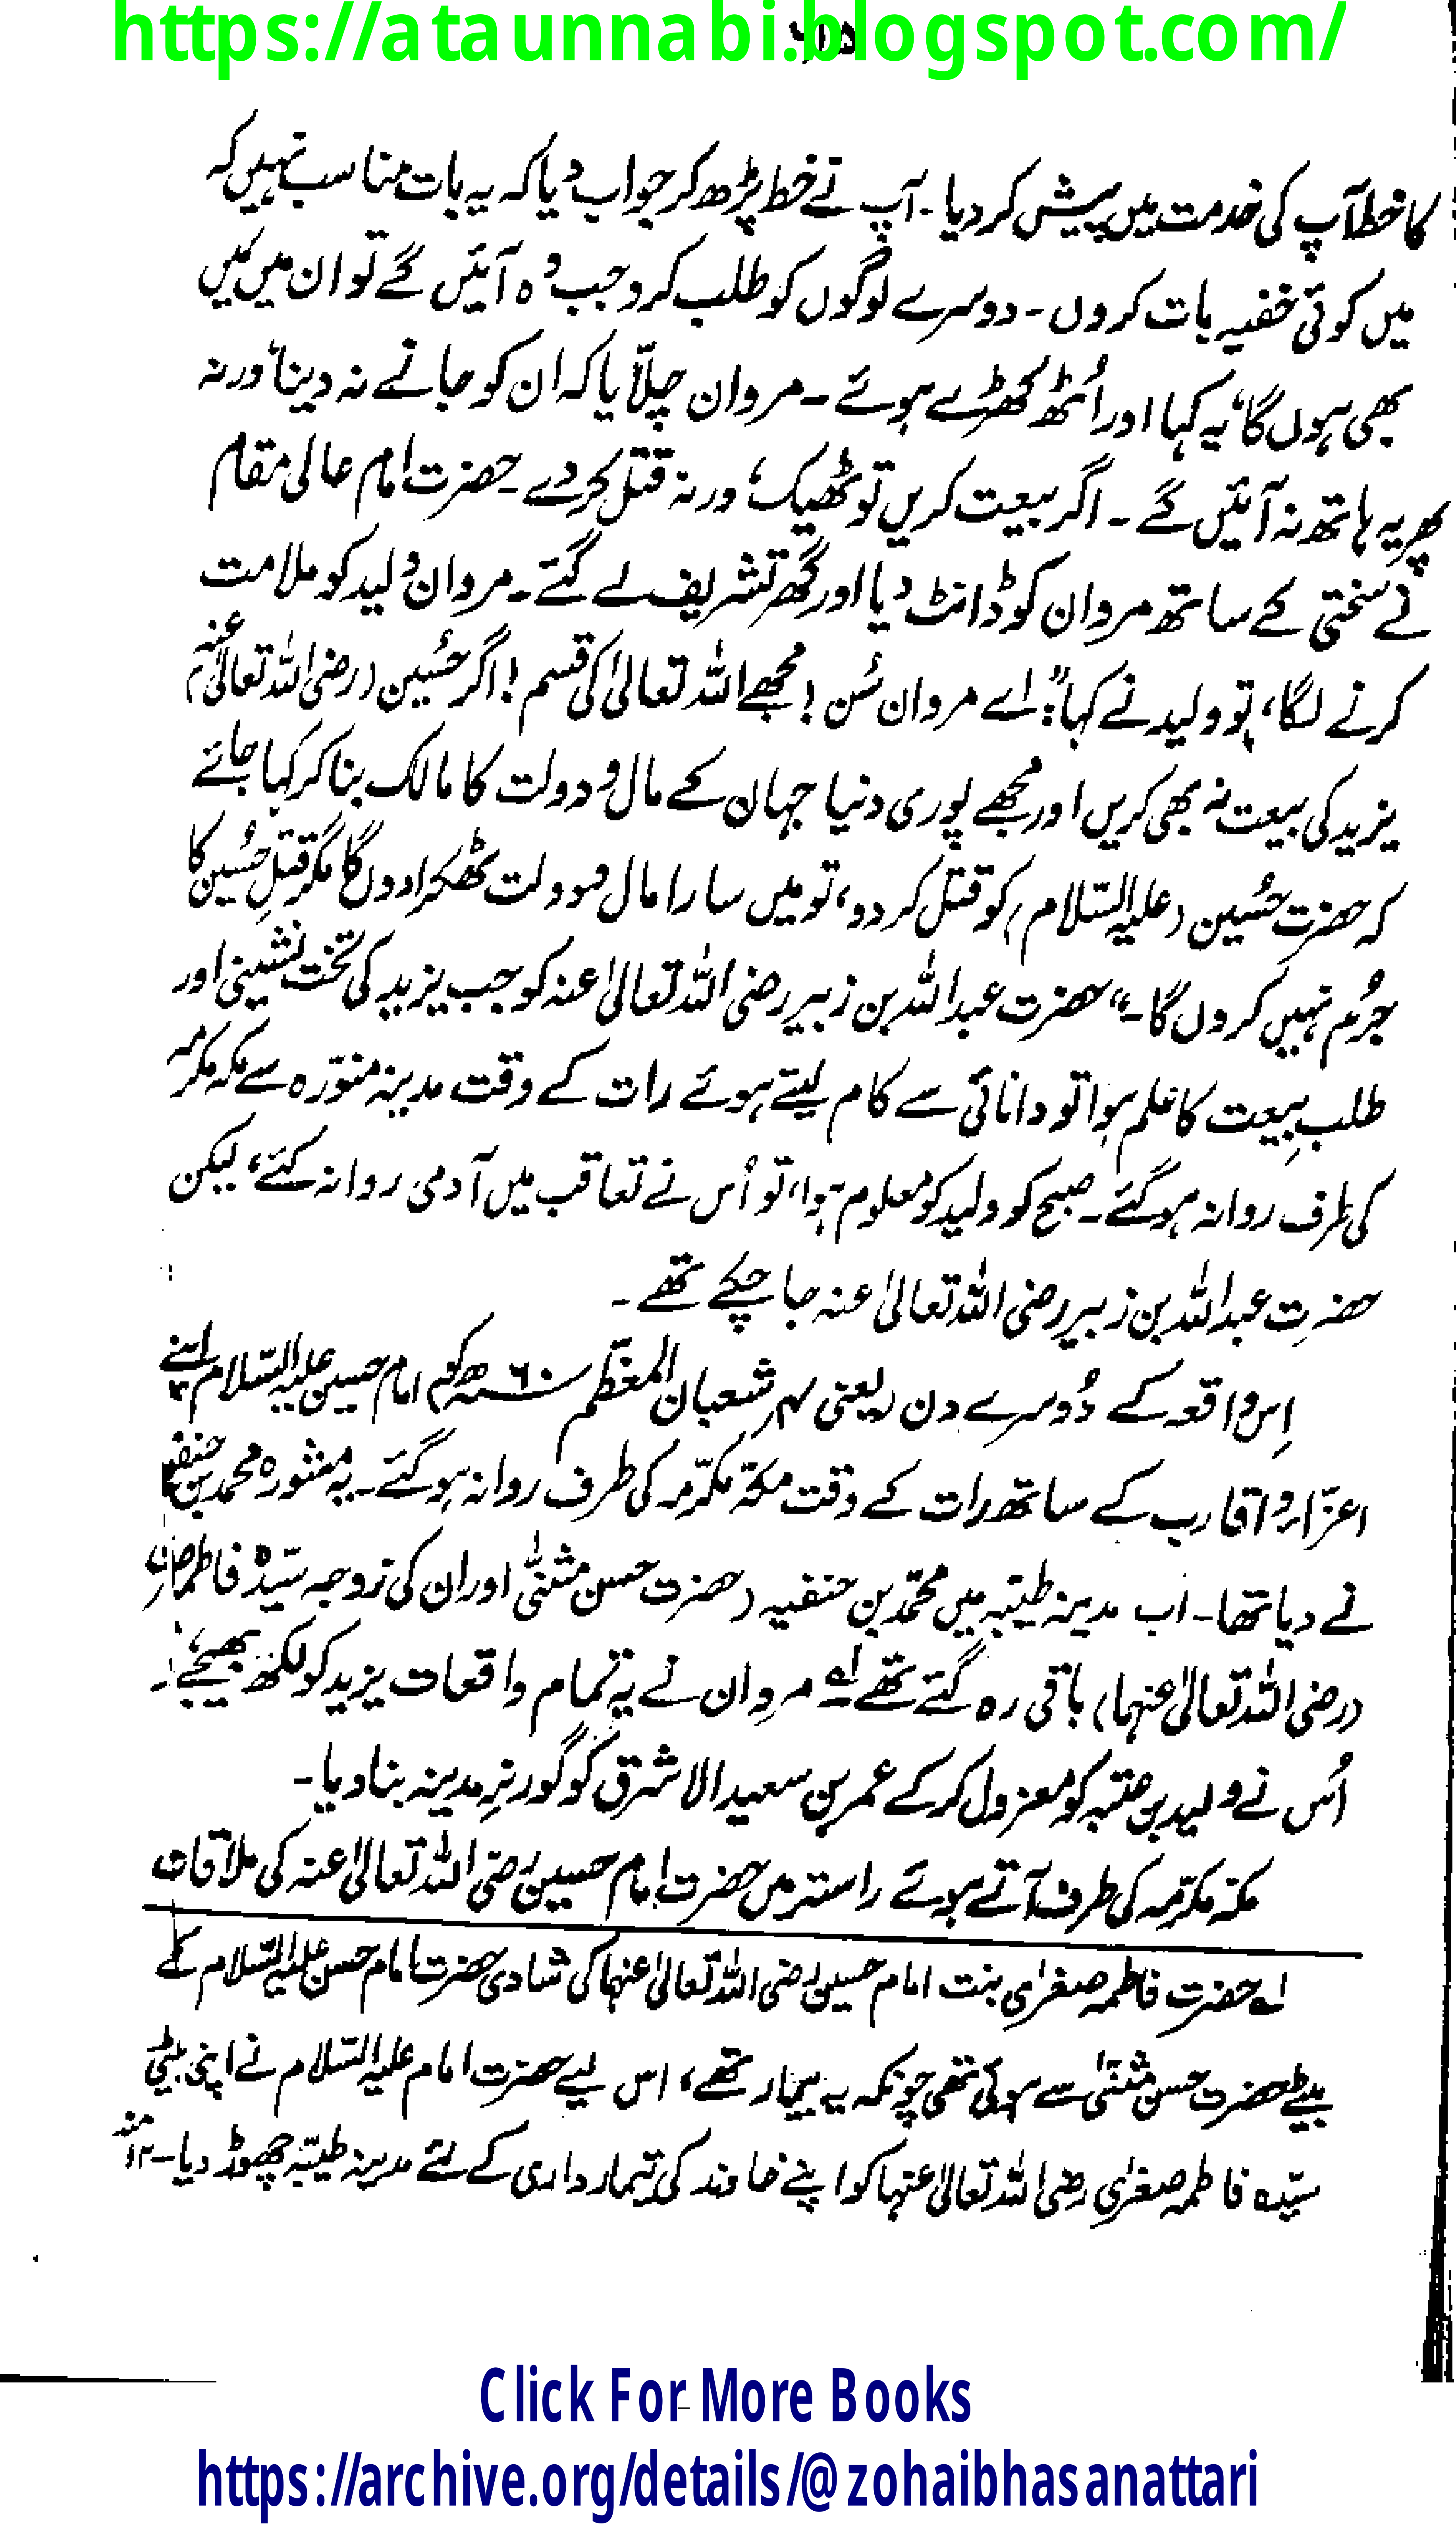 https://ataunnabi.blogspot.com/
کا خط آپ کی خدمت میں پیش کر دیا۔ آپ نے خط پڑھ کر جواب دیا کہ یہ بات مناسب نہیں کہ
میں کوئی خفیہ بات کروں۔ دوسرے لوگوں کو طلب کرو جب وہ آئیں گے تو ان میں میں
بھی ہوں گا، یہ کہا اور اُٹھ کھڑے ہوئے۔ مروان چلّایا کہ ان کو جانے نہ دینا، ورنہ
پھر یہ ہاتھ نہ آئیں گے۔ اگر بیعت کریں تو ٹھیک، ورنہ قتل کر دے۔ حضرت امام عالی مقام
نے سختی کے ساتھ مروان کو ڈانٹ دیا اور گھر تشریف لے گئے۔ مروان ولید کو ملامت
کرنے لگا، تو ولید نے کہا: "اے مروان سُن! مجھے اللہ تعالیٰ کی قسم! اگر حُسین (رضی اللہ تعالیٰ عنہ)
یزید کی بیعت نہ بھی کریں اور مجھے پوری دنیا جہان کے مال و دولت کا مالک بنا کر کہا جائے
کہ حضرت حُسین (علیہ السّلام) کو قتل کر دو، تو میں سارا مال و دولت ٹھکرا دوں گا مگر قتلِ حُسین کا
جُرم نہیں کروں گا۔" حضرت عبداللہ بن زبیر رضی اللہ تعالیٰ عنہ کو جب یزید کی تخت نشینی اور
طلبِ بیعت کا علم ہوا تو دانائی سے کام لیتے ہوئے رات کے وقت مدینہ منوّرہ سے مکہ مکرمہ
کی طرف روانہ ہو گئے۔ صبح کو ولید کو معلوم ہوا، تو اُس نے تعاقب میں آدمی روانہ کئے، لیکن
حضرت عبداللہ بن زبیر رضی اللہ تعالیٰ عنہ جا چکے تھے۔
اِس واقعہ کے دُوسرے دن (یعنی ۴ شعبان المعظّم سنہ ۶۰ھ کو) امام حسین علیہ السّلام اپنے
اعزّاء و اقارب کے ساتھ رات کے وقت مکّہ مکرّمہ کی طرف روانہ ہو گئے۔ یہ مشورہ محمد بن حنفیہ
نے دیا تھا۔ اب مدینہ طیّبہ میں محمّد بن حنفیہ (حضرت حسن مثنیٰ اور ان کی زوجہ سیّدہ فاطمہ
(رضی اللہ تعالیٰ عنہما) باقی رہ گئے تھے لہ مروان نے یہ تمام واقعات یزید کو لکھ بھیجے۔
اُس نے ولید بن عتبہ کو معزول کر کے عمر بن سعید الاشرق کو گورنرِ مدینہ بنا دیا۔
مکّہ مکرّمہ کی طرف آتے ہوئے راستہ میں حضرت امام حسین رضی اللہ تعالیٰ عنہ کی ملاقات
لہ حضرت فاطمہ صغریٰ بنت امام حسین رضی اللہ تعالیٰ عنہا کی شادی حضرت امام حسن علیہ السّلام کے
بیٹے حضرت حسن مثنّیٰ سے ہوئی تھی چونکہ یہ بیمار تھے، اس لیے حضرت امام علیہ السّلام نے اپنی بیٹی
سیّدہ فاطمہ صغریٰ رضی اللہ تعالیٰ عنہا کو اپنے خاوند کی تیمارداری کے لئے مدینہ طیّبہ چھوڑ دیا۔ ۱۲ منہ
Click For More Books
https://archive.org/details/@zohaibhasanattari